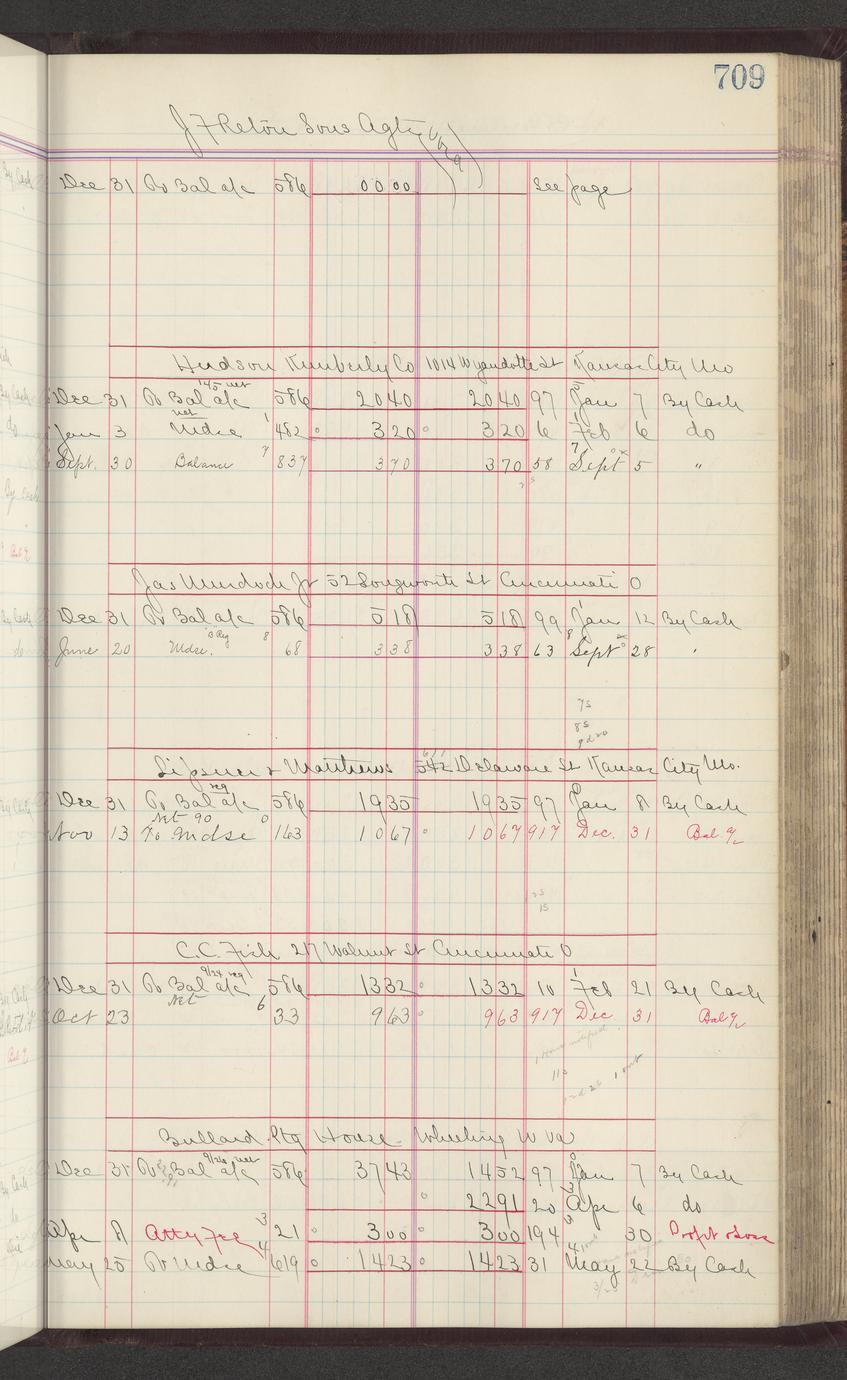 709
J F Sons Agty
Dec 31 To Bal a/c 586 0000 See page
Hudson Kimberly Co 1014 Wyandotte St Kansas City Mo
145 net
Dec 31 To Bal a/c 586 2040 2040 97 Jan 7 By Cash
net
Jan 3 Mdse 1 482 320 320 6 Feb 6 do
Sept. 30 Balance 7 837 370 370 58 Sept 5 "
Jas Murdock Jr 52 Longworth St Cincinnati O
Dec 31 To Bal a/c 586 518 518 99 Jan 12 By Cash
June 20 Mdse. 8 68 338 338 63 Sept 28 "
75
85
Matthews Delaware St Kansas City Mo.
Dec 31 To Bal a/c 586 1935 1935 97 Jan 8 By Cash
Net 90
Nov 13 To Mdse 0 163 1067 1067 917 Dec. 31 Bal a/c
25
15
C.C. Fish 217 Walnut St Cincinnati O
9/24 reg
Dec 31 To Bal a/c 586 1332 1332 10 Feb 21 By Cash
Net
Oct 23 6 33 963 963 917 Dec 31 Bal a/c
115
Bullard Ptg House Wheeling W Va
9/26 net
Dec 31 To Bal a/c 586 3743 1452 97 Jan 7 By Cash
2291 20 Apr 6 do
Apr 8 Atty Fee 3 21 300 300 194 30 Profit & Loss
May 25 To Mdse 4 619 1423 1423 31 May 22 By Cash